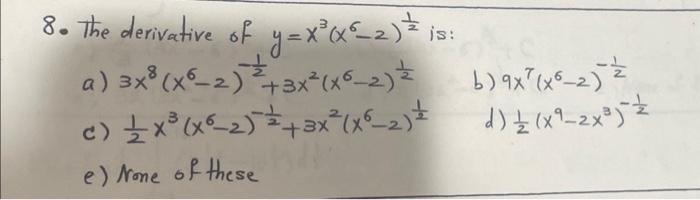 8. The derivative of y = x³(x⁶-2)^(1/2) is:
a) 3x⁸(x⁶-2)^(-1/2) + 3x²(x⁶-2)^(1/2) b) 9x⁷(x⁶-2)^(-1/2)
c) 1/2 x³(x⁶-2)^(-1/2) + 3x²(x⁶-2)^(1/2) d) 1/2 (x⁹-2x³)^(-1/2)
e) None of these